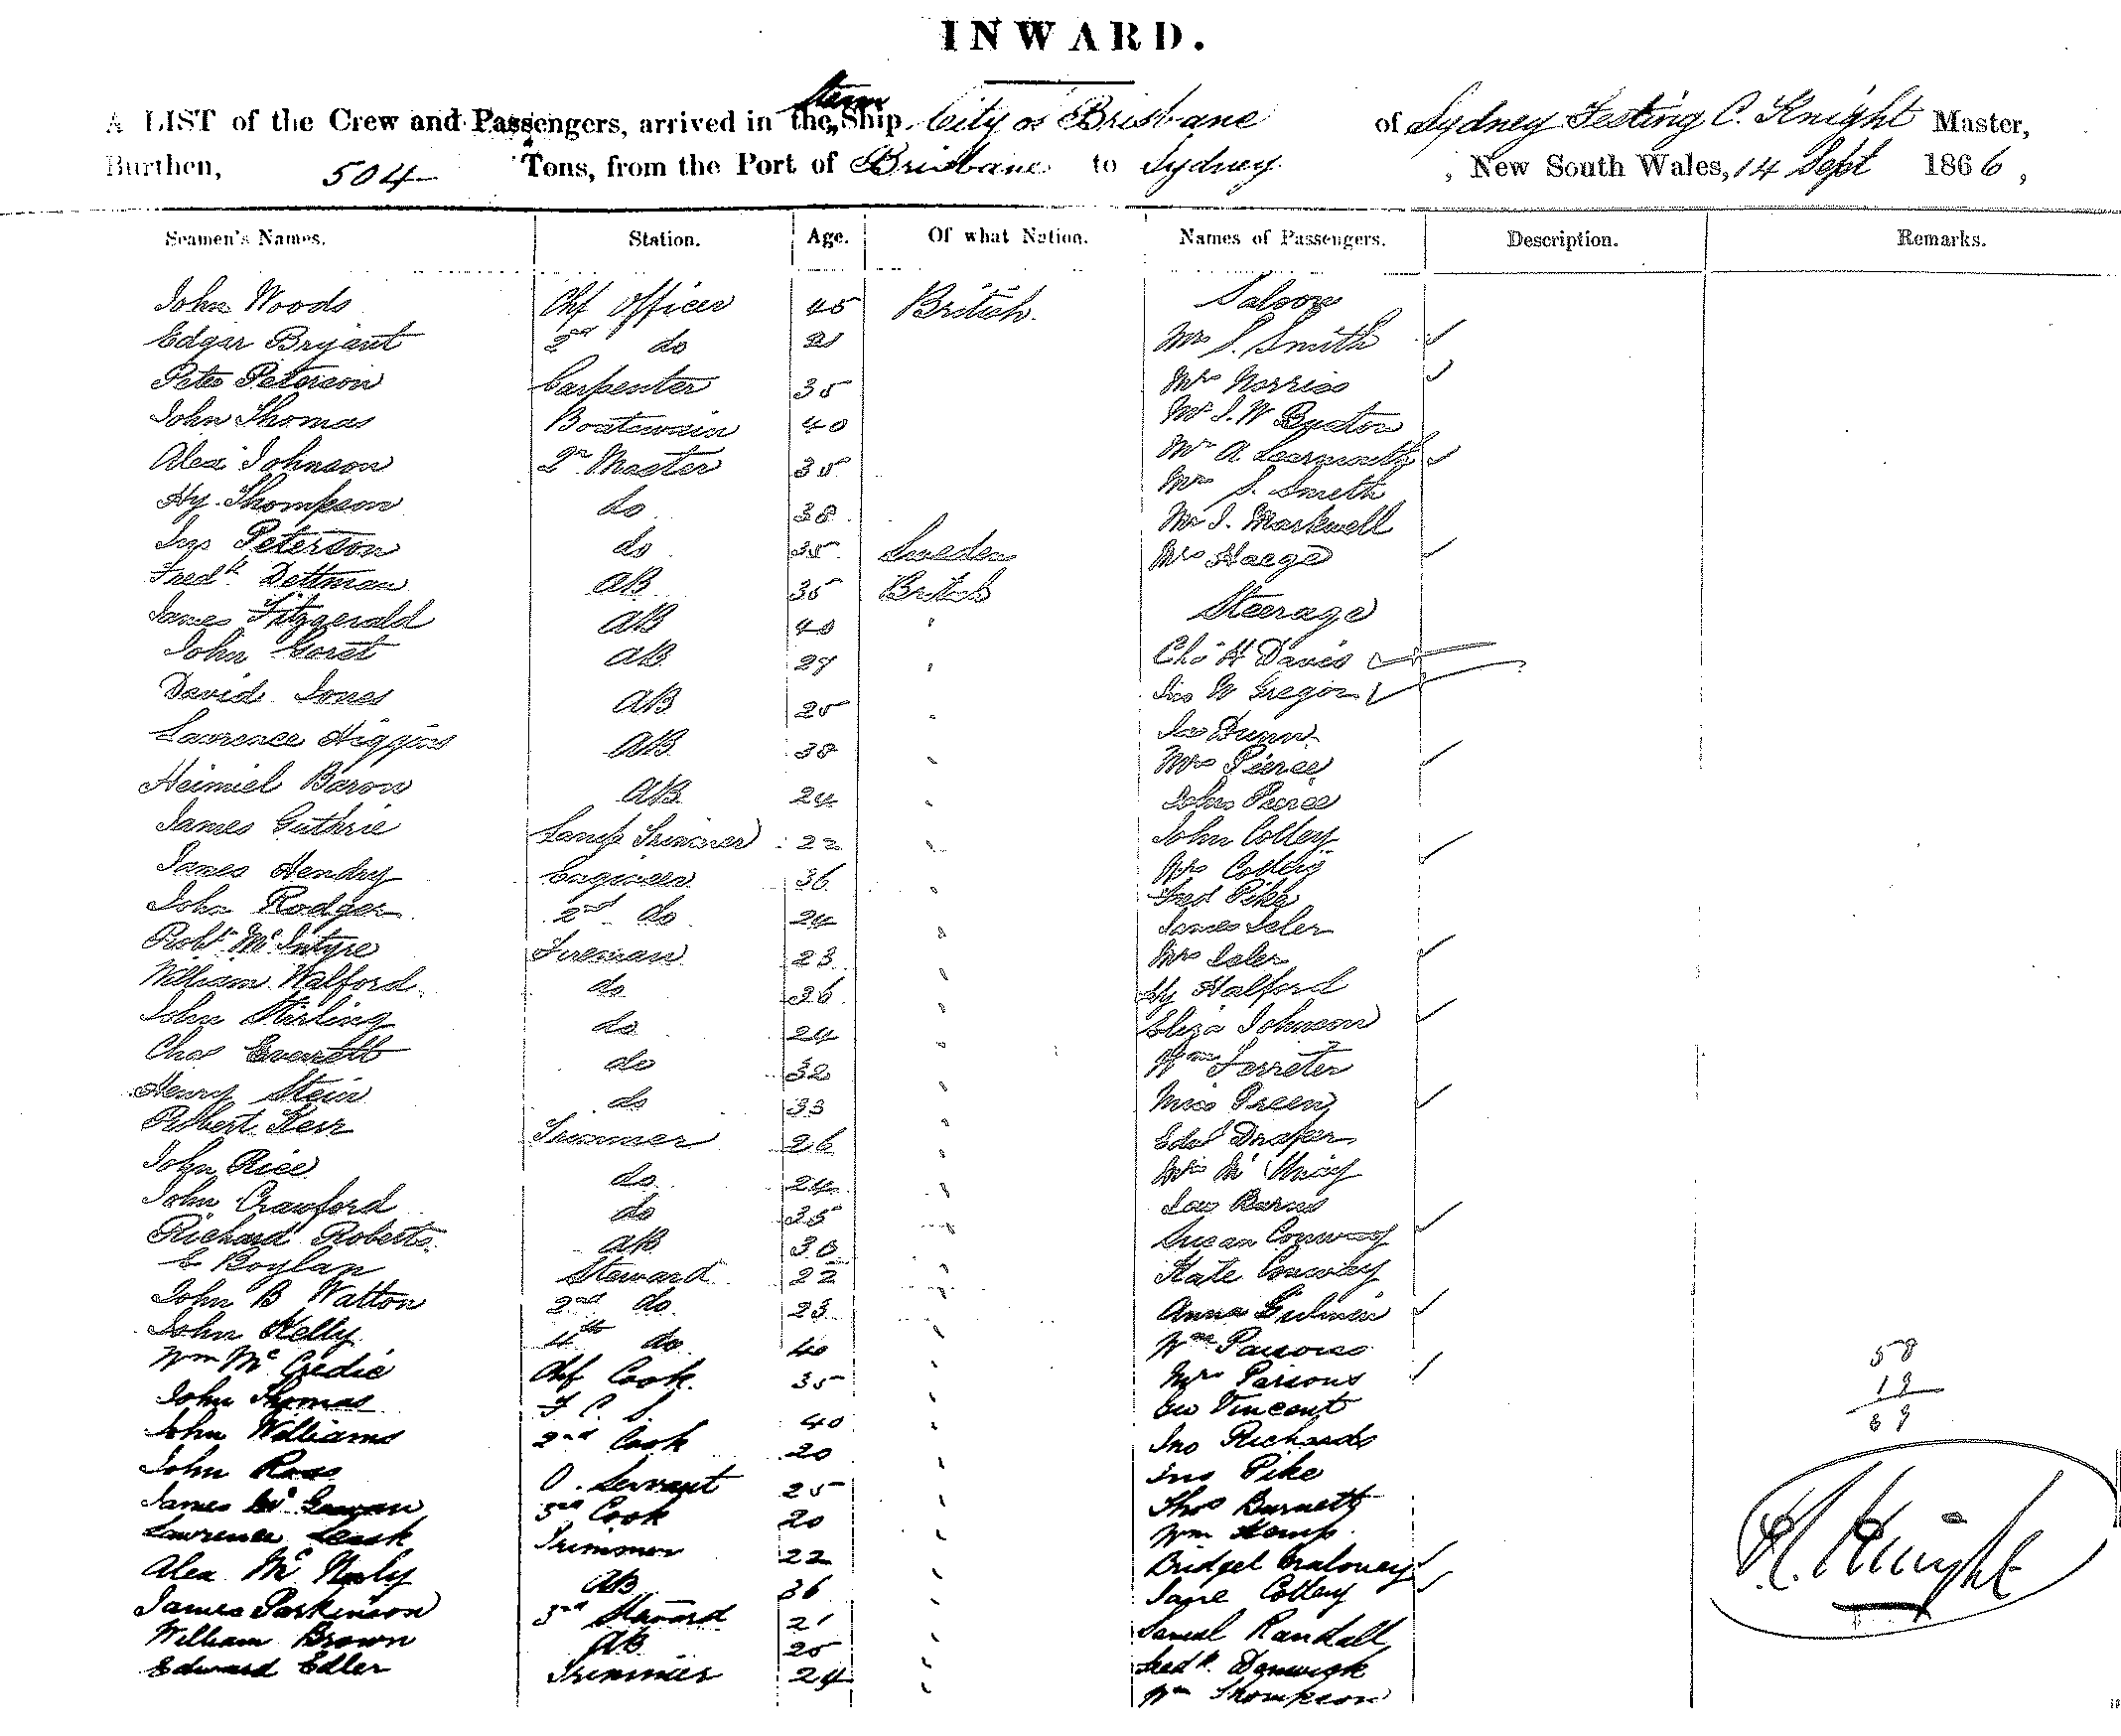 INWARD.
A LIST of the Crew and Passengers, arrived in the Steam Ship City of Brisbane of Sydney C. Knight Master,
Burthen, 504 Tons, from the Port of Brisbane to Sydney, New South Wales, 14 Sept 1866,
Seamen's Names. Station. Age. Of what Nation. Names of Passengers. Description. Remarks.
John Woods Chf Officer 45 British Saloon
Edgar Bryant 2nd do 21 Mrs S. Smith
Peter Peterson Carpenter 35 Mrs Norriss
John Thomas Boatswain 40 Mr J. W Buxton
Alex Johnson Qr Master 35 Mr A Learmouth
Hy. Thompson do 38 Mr S. Smith
Jno Peterson do 35 Sweden Mr J. Markwell
Fredk Dettman AB 35 British Mrs Haege
James Fitzgerald AB 40 " Steerage
John Goret AB 27 " Chs H Davis
David Jones AB 25 " Jno W Gregor
Lawrence Higgins AB 38 " Jas Dunn
Heimiel Baron AB 24 " Mrs Pierce
James Guthrie Lamp Trimmer 22 " John Pierce
James Hendry Engineer 36 " John Colley
John Rodger 2nd do 24 " Mrs Colley
Robt McIntyre Fireman 23 " Fred Pike
William Walford do 26 " James Isler
John Stirling do 24 " Mrs Isler
Chas Everett do 32 " Hy Halford
Henry Stein do 33 " Eliza Johnson
Robert Kerr Trimmer 26 " Wm Forreter
John Rice do 24 " Miss Preen
John Crawford do 35 " Edwd Draper
Richard Roberts AB 30 " Wm Mc
E Boylan Steward 22 " Jas Barns
John B Watton 2nd do 23 " Susan Conway
John Kelly 4th do 40 " Kate Conway
Wm McCredie Chf Cook 35 " Anna
John Thomas F. C. S. 40 " Wm Parsons
John Williams 2nd Cook 20 " Mrs Parsons
John Ross O. Servant 25 " Geo Vincent
James McGowan 3rd Cook 20 " Jno Richards
Lawrence Leask Trimmer 22 " Jno Pike
Alex McNeily AB 36 " Thos Burnett
James Parkinson 3rd Steward 21 " Wm Kemp
William Brown AB 25 " Bridget Maloney
Edward Edler Trimmer 24 " Jane Colley
Samuel Randall
Fredk Danwick
Wm Thompson
58
19
89
C. Knight